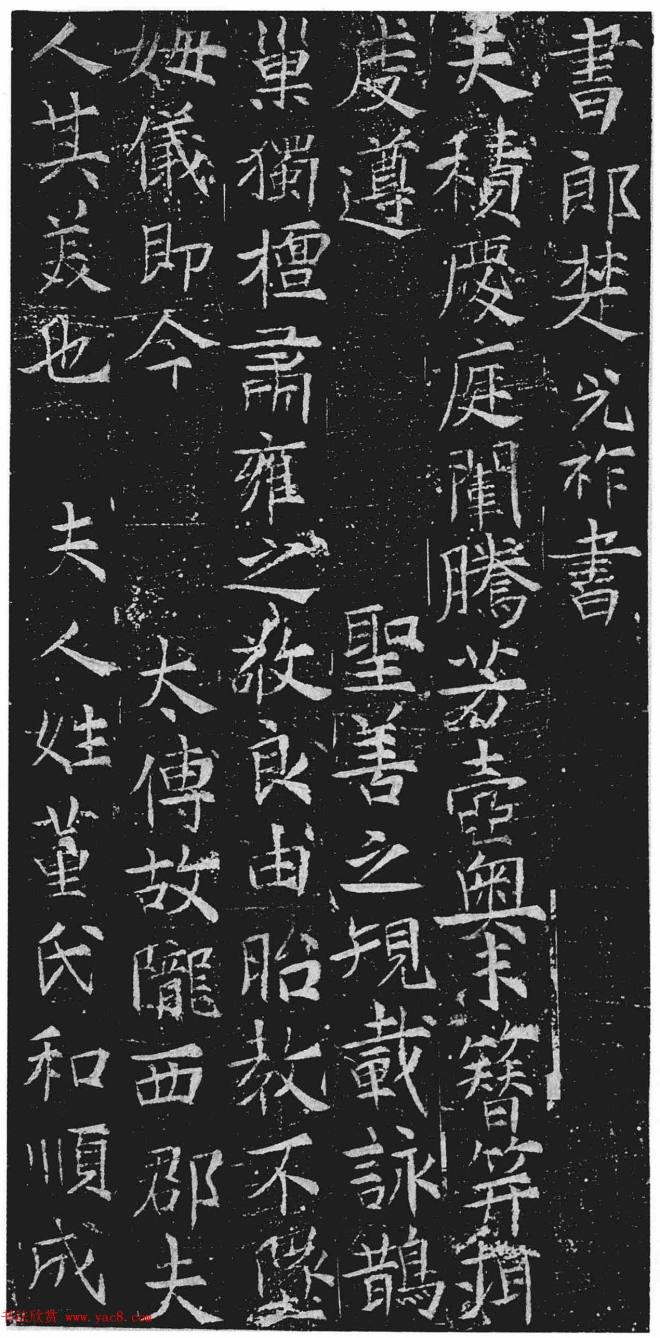 書郎楚光祚書
夫積慶庭闈騰芳壼奧未簪笄
虔遵 聖善之規載詠鵲
巢獨檀肅雍之敬良由胎教不墜
姆儀即今 太傅故隴西郡夫
人其美也 夫人姓董氏和順成
书法欣赏 www.yac8.com